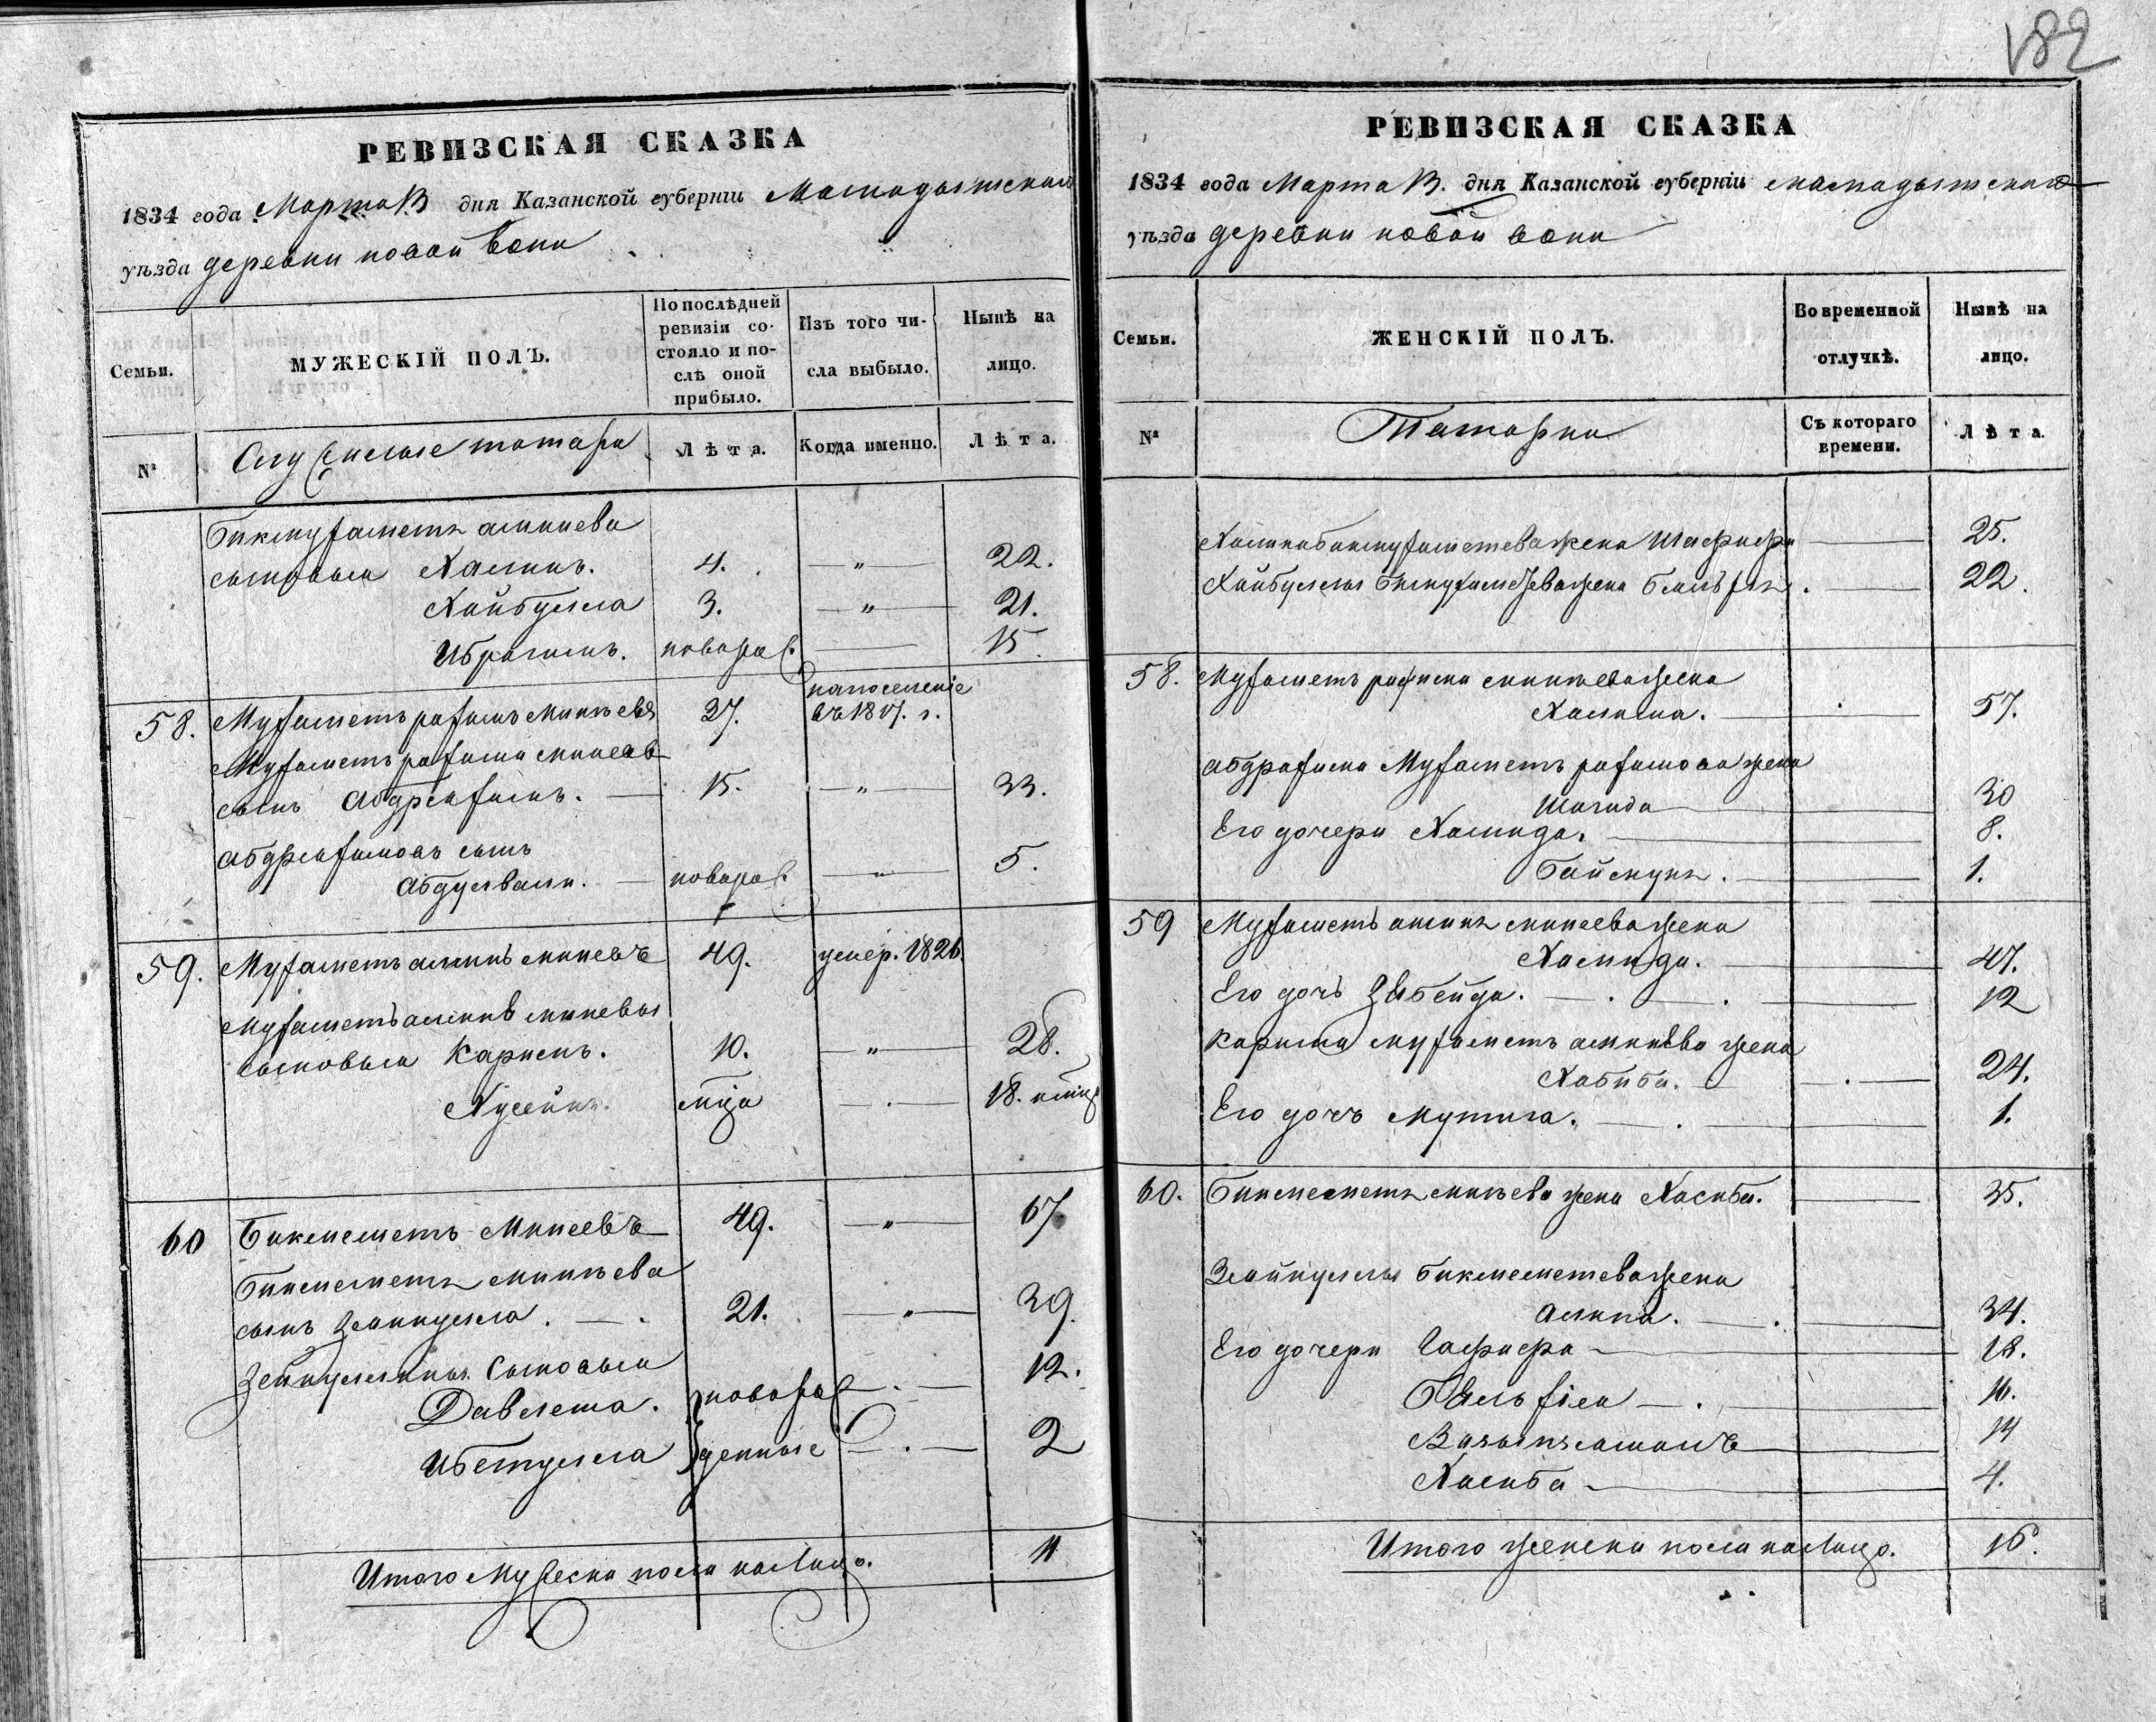 182
РЕВИЗСКАЯ СКАЗКА
1834 года Марта 13 дня Казанской губерніи Мамадышскаго
уѣзда деревни новой
Семьи.
МУЖЕСКІЙ ПОЛЪ.
По послѣдней ревизіи со-
стояло и по-
слѣ оной
прибыло.
Изъ того чи-
сла выбыло.
Нынѣ на
лицо.
№
Служилые татара
Лѣта.
Когда именно.
Лѣта.
Бикмухаметъ аминева
сыновья Халимъ. 4. — " — 22.
Хайбулла 3. — " — 21.
Ибрагимъ. новорож. — 15.
58. Мухаметъ рахимъ Минѣевъ 37. на поселеніе
въ 1817. г.
Мухаметъ рахима минеева
сынъ Абдрахимъ. — 15. — " — 33.
Абдрахимовъ сынъ
Абдулвали. — новорож. — " — 5.
59. Мухаметъ аминь минеевъ 49. умер. 1826.
Мухаметъ аминь минеева
сыновья Каримъ. 10. — " — 28.
Хусейнъ. 18.
60 Бикмеметъ Минеевъ 49. — " — 67.
Бикмеметя минѣева
сынъ Зейнулла. — . 21. — " — 39.
сыновья
Давлета. новорож — . — 12.
денные — . — 2
Итого Мужеска пола на Лицо. 11
РЕВИЗСКАЯ СКАЗКА
1834 года Марта 13. дня Казанской губерніи мамадышскаго
уѣзда деревни новой
Семьи.
ЖЕНСКІЙ ПОЛЪ.
Во временной
отлучкѣ.
Нынѣ на
лицо.
№
Татарки
Съ котораго
времени.
Лѣта.
Халима бикмухаметева жена — 25.
Хайбуллы бикмухаметева жена — 22.
58. Мухаметъ рахима минѣева жена
Халима. — 57.
Абдрахима Мухаметъ рахимова жена
Шагида — 30
Его дочери Хамида. — 8.
— 1.
59 Мухаметь аминя минеева жена
Хамида. — 47.
Его дочь Зюбейда. — . — . — 12
Карима мухаметъ аминева жена
Хабиба. — . — 24.
Его дочь — . — 1.
60. Бикмеметя минѣева жена Хасиба. — 35.
Зейнуллы бикмеметева жена
— . — 34.
Его дочери — 18.
— . — 16.
— 14
Хасиба — 4.
Итого женска пола на Лицо. 16.